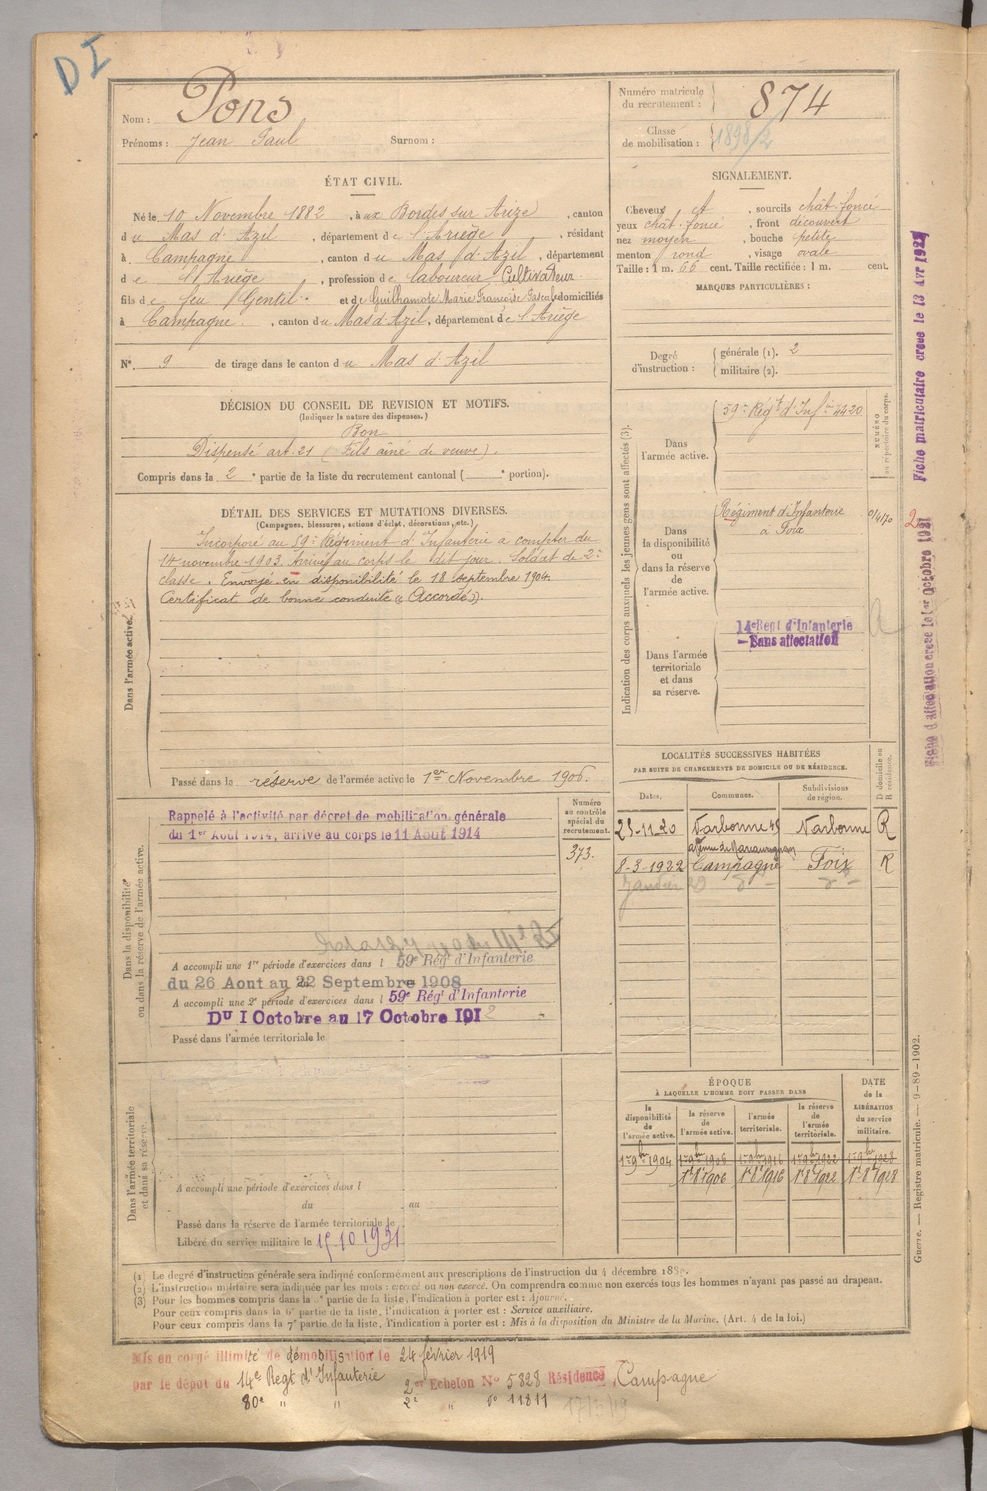 D I
Nom : Pons
Prénoms : Jean Paul Surnom :
Numéro matricule du recrutement : 874
Classe de mobilisation : 1898/2
ÉTAT CIVIL.
Né le 10 Novembre 1882, à ux Bordes sur Arize, canton
du Mas d'Azil, département de l'Ariège, résidant
à Campagne, canton du Mas d'Azil, département
de l'Ariège, profession de laboureur Cultivateur
fils de feu Gentil et de Guilhamote Marie Françoise Pascale domiciliés
à Campagne, canton du Mas d'Azil, département de l'Ariège
N° 9 de tirage dans le canton du Mas d'Azil
SIGNALEMENT.
Cheveux et, sourcils chât. foncé
yeux chât. foncé, front découvert
nez moyen, bouche petite
menton rond, visage ovale
Taille : 1 m. 66 cent. Taille rectifiée : 1 m. cent.
MARQUES PARTICULIÈRES :
Degré d'instruction : générale (1). 2
militaire (2).
DÉCISION DU CONSEIL DE REVISION ET MOTIFS.
(Indiquer la nature des dispenses.)
Bon
Dispensé art. 21 (Fils aîné de veuve).
Compris dans la 2e partie de la liste du recrutement cantonal ( e portion).
DÉTAIL DES SERVICES ET MUTATIONS DIVERSES.
(Campagnes, blessures, actions d'éclat, décorations, etc.)
Dans l'armée active.
Incorporé au 59e Régiment d'Infanterie à compter du
14 novembre 1903. Arrivé au corps le dit jour. Soldat de 2e
classe. Envoyé en disponibilité le 18 septembre 1904.
Certificat de bonne conduite « Accordé ».
Passé dans la réserve de l'armée active le 1er Novembre 1906.
Indication des corps auxquels les jeunes gens sont affectés (3).
NUMÉRO au répertoire du corps.
Dans l'armée active.
59e Régt d'Infie 4420
Dans la disponibilité ou dans la réserve de l'armée active.
Régiment d'Infanterie
à Foix
14e Regt d'Infanterie
Sans affectation
Dans l'armée territoriale et dans sa réserve.
Fiche matriculaire créée le 13 Avr
Fiche d'affectation créée le 1er Octobre
Dans la disponibilité ou dans la réserve de l'armée active.
Rappelé à l'activité par décret de mobilisation générale
du 1er Août 1914, arrivé au corps le 11 Août 1914
Numéro au contrôle spécial du recrutement.
373.
A accompli une 1re période d'exercices dans l 59e Rég. d'Infanterie
du 26 Aout au 22 Septembre 1908
A accompli une 2e période d'exercices dans l 59e Rég. d'Infanterie
DU 1 Octobre au 17 Octobre 1912
Passé dans l'armée territoriale le
LOCALITÉS SUCCESSIVES HABITÉES
PAR SUITE DE CHANGEMENTS DE DOMICILE OU DE RÉSIDENCE.
Dates. Communes. Subdivisions de région. D domicile ou R résidence.
23-11-20 Narbonne 49 Narbonne R
8-3-1922 Campagne Foix R
ÉPOQUE
À LAQUELLE L'HOMME DOIT PASSER DANS
la disponibilité de l'armée active. la réserve de l'armée active. l'armée territoriale. la réserve de l'armée territoriale. DATE de la LIBÉRATION du service militaire.
1er 9bre 1904 1er 9bre 1906 1er 9bre 1916 1er 9bre 1922 1er 9bre 1928
1er 8bre 1906 1er 8bre 1916 1er 8bre 1922 1er 8bre 1928
Dans l'armée territoriale et dans sa réserve.
A accompli une période d'exercices dans l
du au
Passé dans la réserve de l'armée territoriale le
Libéré du service militaire le 15.10.1931
Guerre. — Registre matricule. — 9-89-1902.
(1) Le degré d'instruction générale sera indiqué conformément aux prescriptions de l'instruction du 4 décembre 1889.
(2) L'instruction militaire sera indiquée par les mots : exercé ou non exercé. On comprendra comme non exercés tous les hommes n'ayant pas passé au drapeau.
(3) Pour les hommes compris dans la partie de la liste, l'indication à porter est : Ajourné.
Pour ceux compris dans la 6e partie de la liste, l'indication à porter est : Service auxiliaire.
Pour ceux compris dans la 7e partie de la liste, l'indication à porter est : Mis à la disposition du Ministre de la Marine. (Art. 4 de la loi.)
Mis en congé illimité de démobilisation le 24 février 1919
par le dépôt du 14e Regt d'Infanterie 2e Echelon N° 5828 Résidence Campagne
80e " " 2e " d° 11811